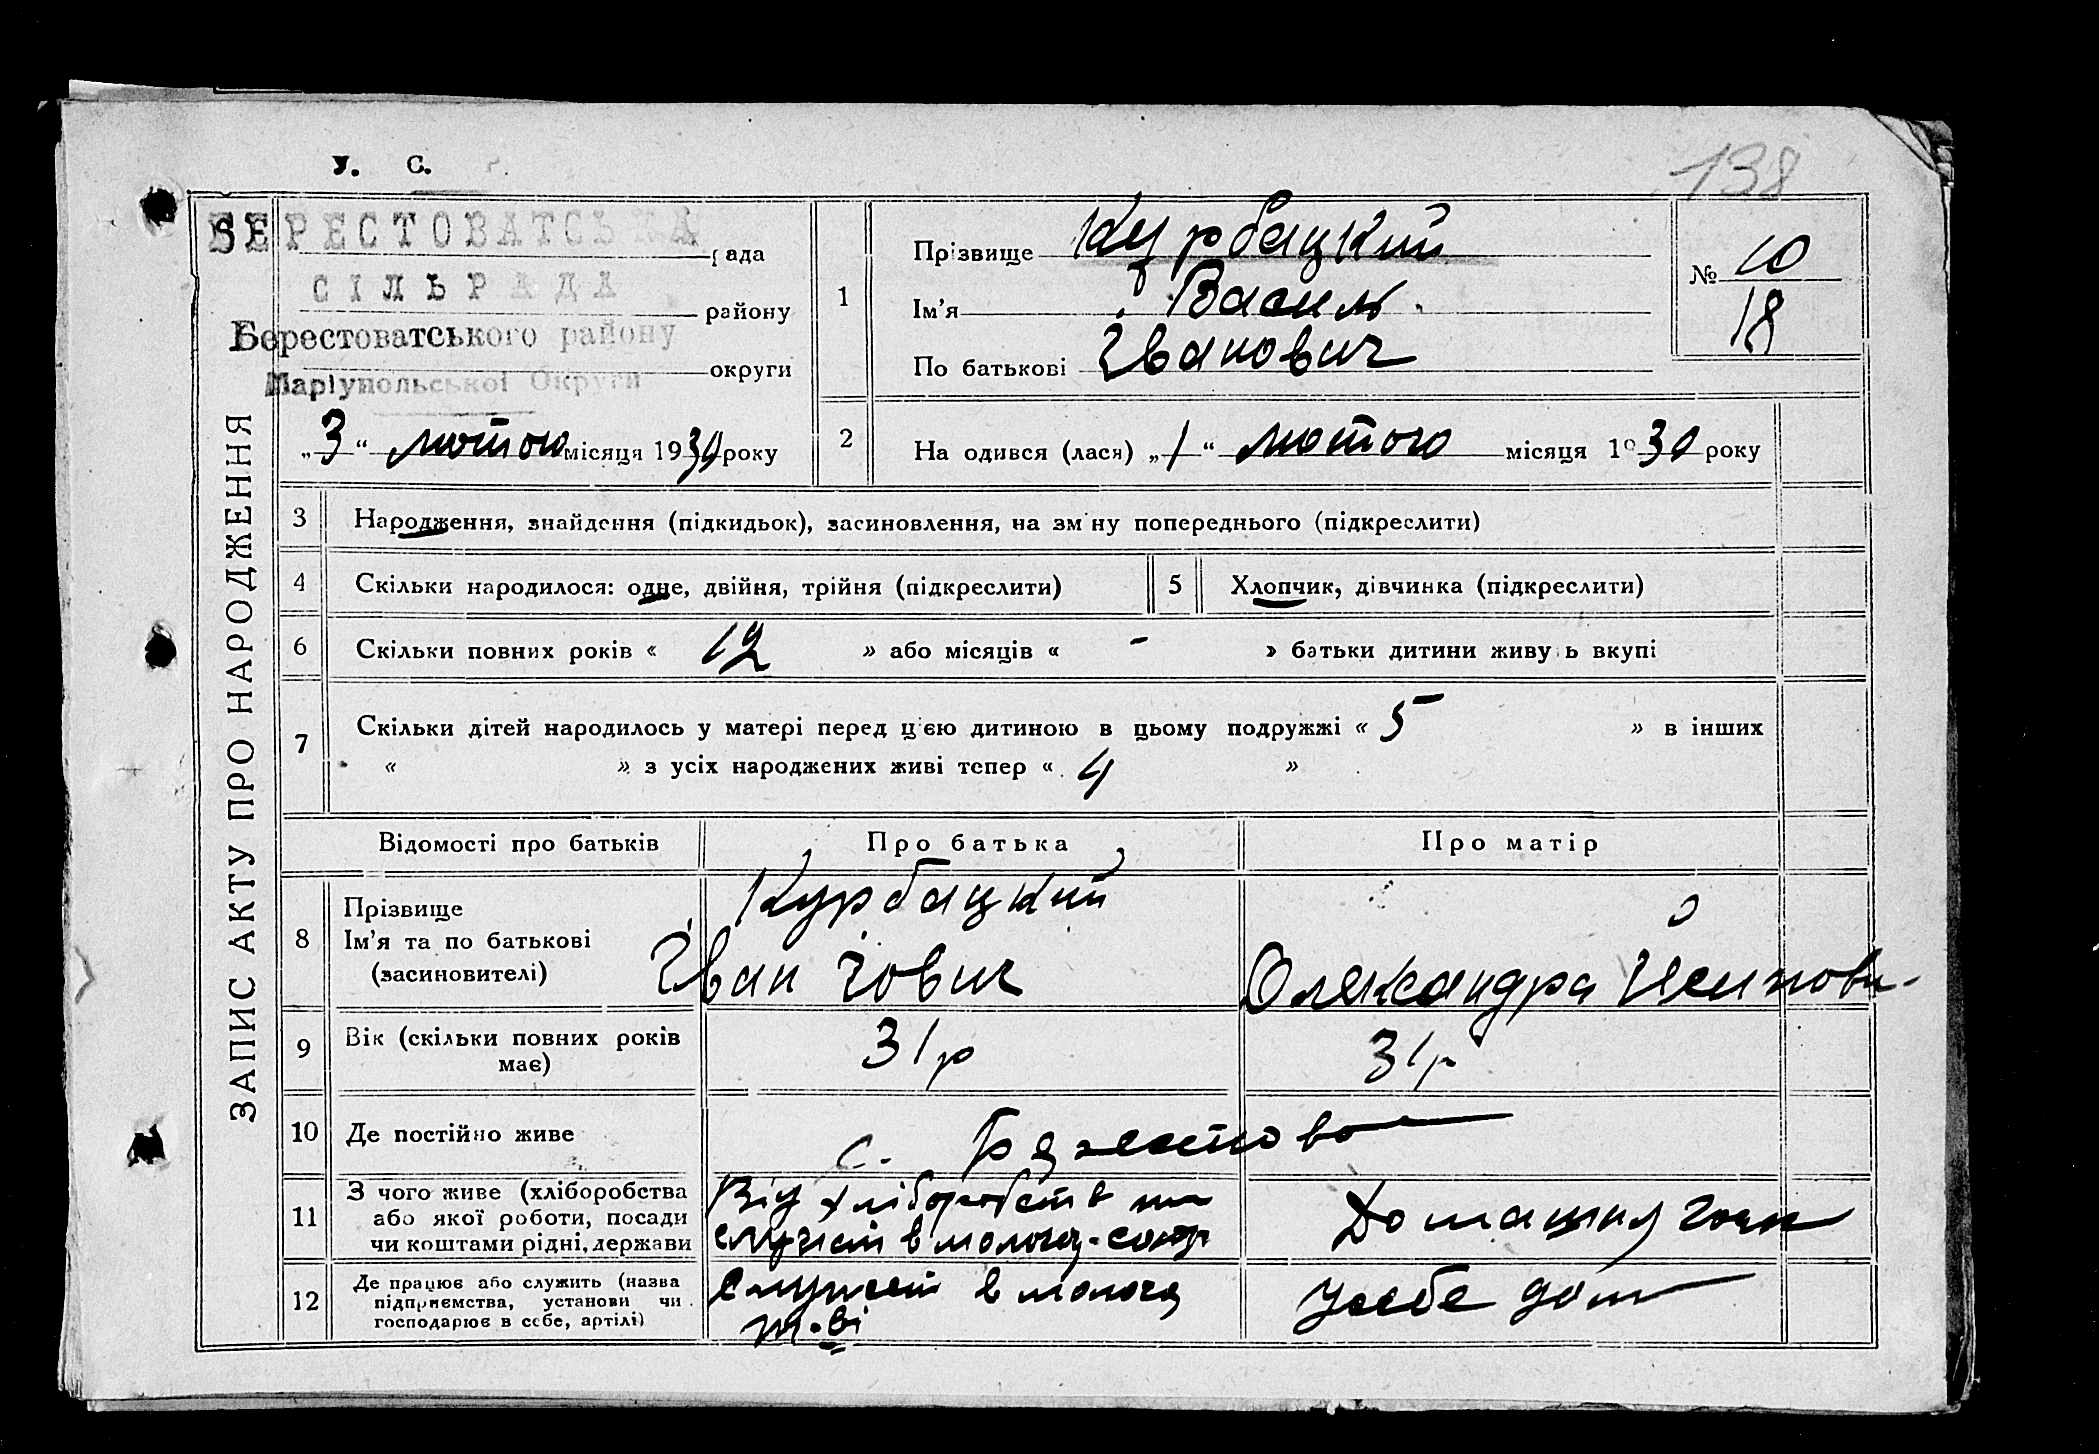 У. С.
138
БЕРЕСТОВАТСЬКА рада
СІЛЬРАДА району
Берестоватського району
Маріупольської Округи округи
„3“ лютого місяця 1930 року
1
Прізвище Курбацкий
Ім'я Василь
По батькові Іванович
№ 10
18
2
На одився (лася) „1“ лютого місяця 1930 року
ЗАПИС АКТУ ПРО НАРОДЖЕННЯ
3 Народження, знайдення (підкидьок), засиновлення, на зміну попереднього (підкреслити)
4 Скільки народилося: одне, двійня, трійня (підкреслити)
5 Хлопчик, дівчинка (підкреслити)
6 Скільки повних років « 12 » або місяців « - » батьки дитини живуть вкупі
7 Скільки дітей народилось у матері перед цією дитиною в цьому подружжі « 5 » в інших
« » з усіх народжених живі тепер « 4 »
Відомості про батьків Про батька Про матір
8 Прізвище
Ім'я та по батькові
(засиновителі)
Курбацкий
Іван Іович
Олександра
9 Вік (скільки повних років
має)
31р
31р
10 Де постійно живе
с.
11 З чого живе (хліборобства
або якої роботи, посади
чи коштами рідні, держави
Від хліборобств та
служит в молоч.
Домашня
12 Де працює або служить (назва
підприємства, установи чи
господарює в себе, артілі)
служит в молоч
т-ві
у себе дом